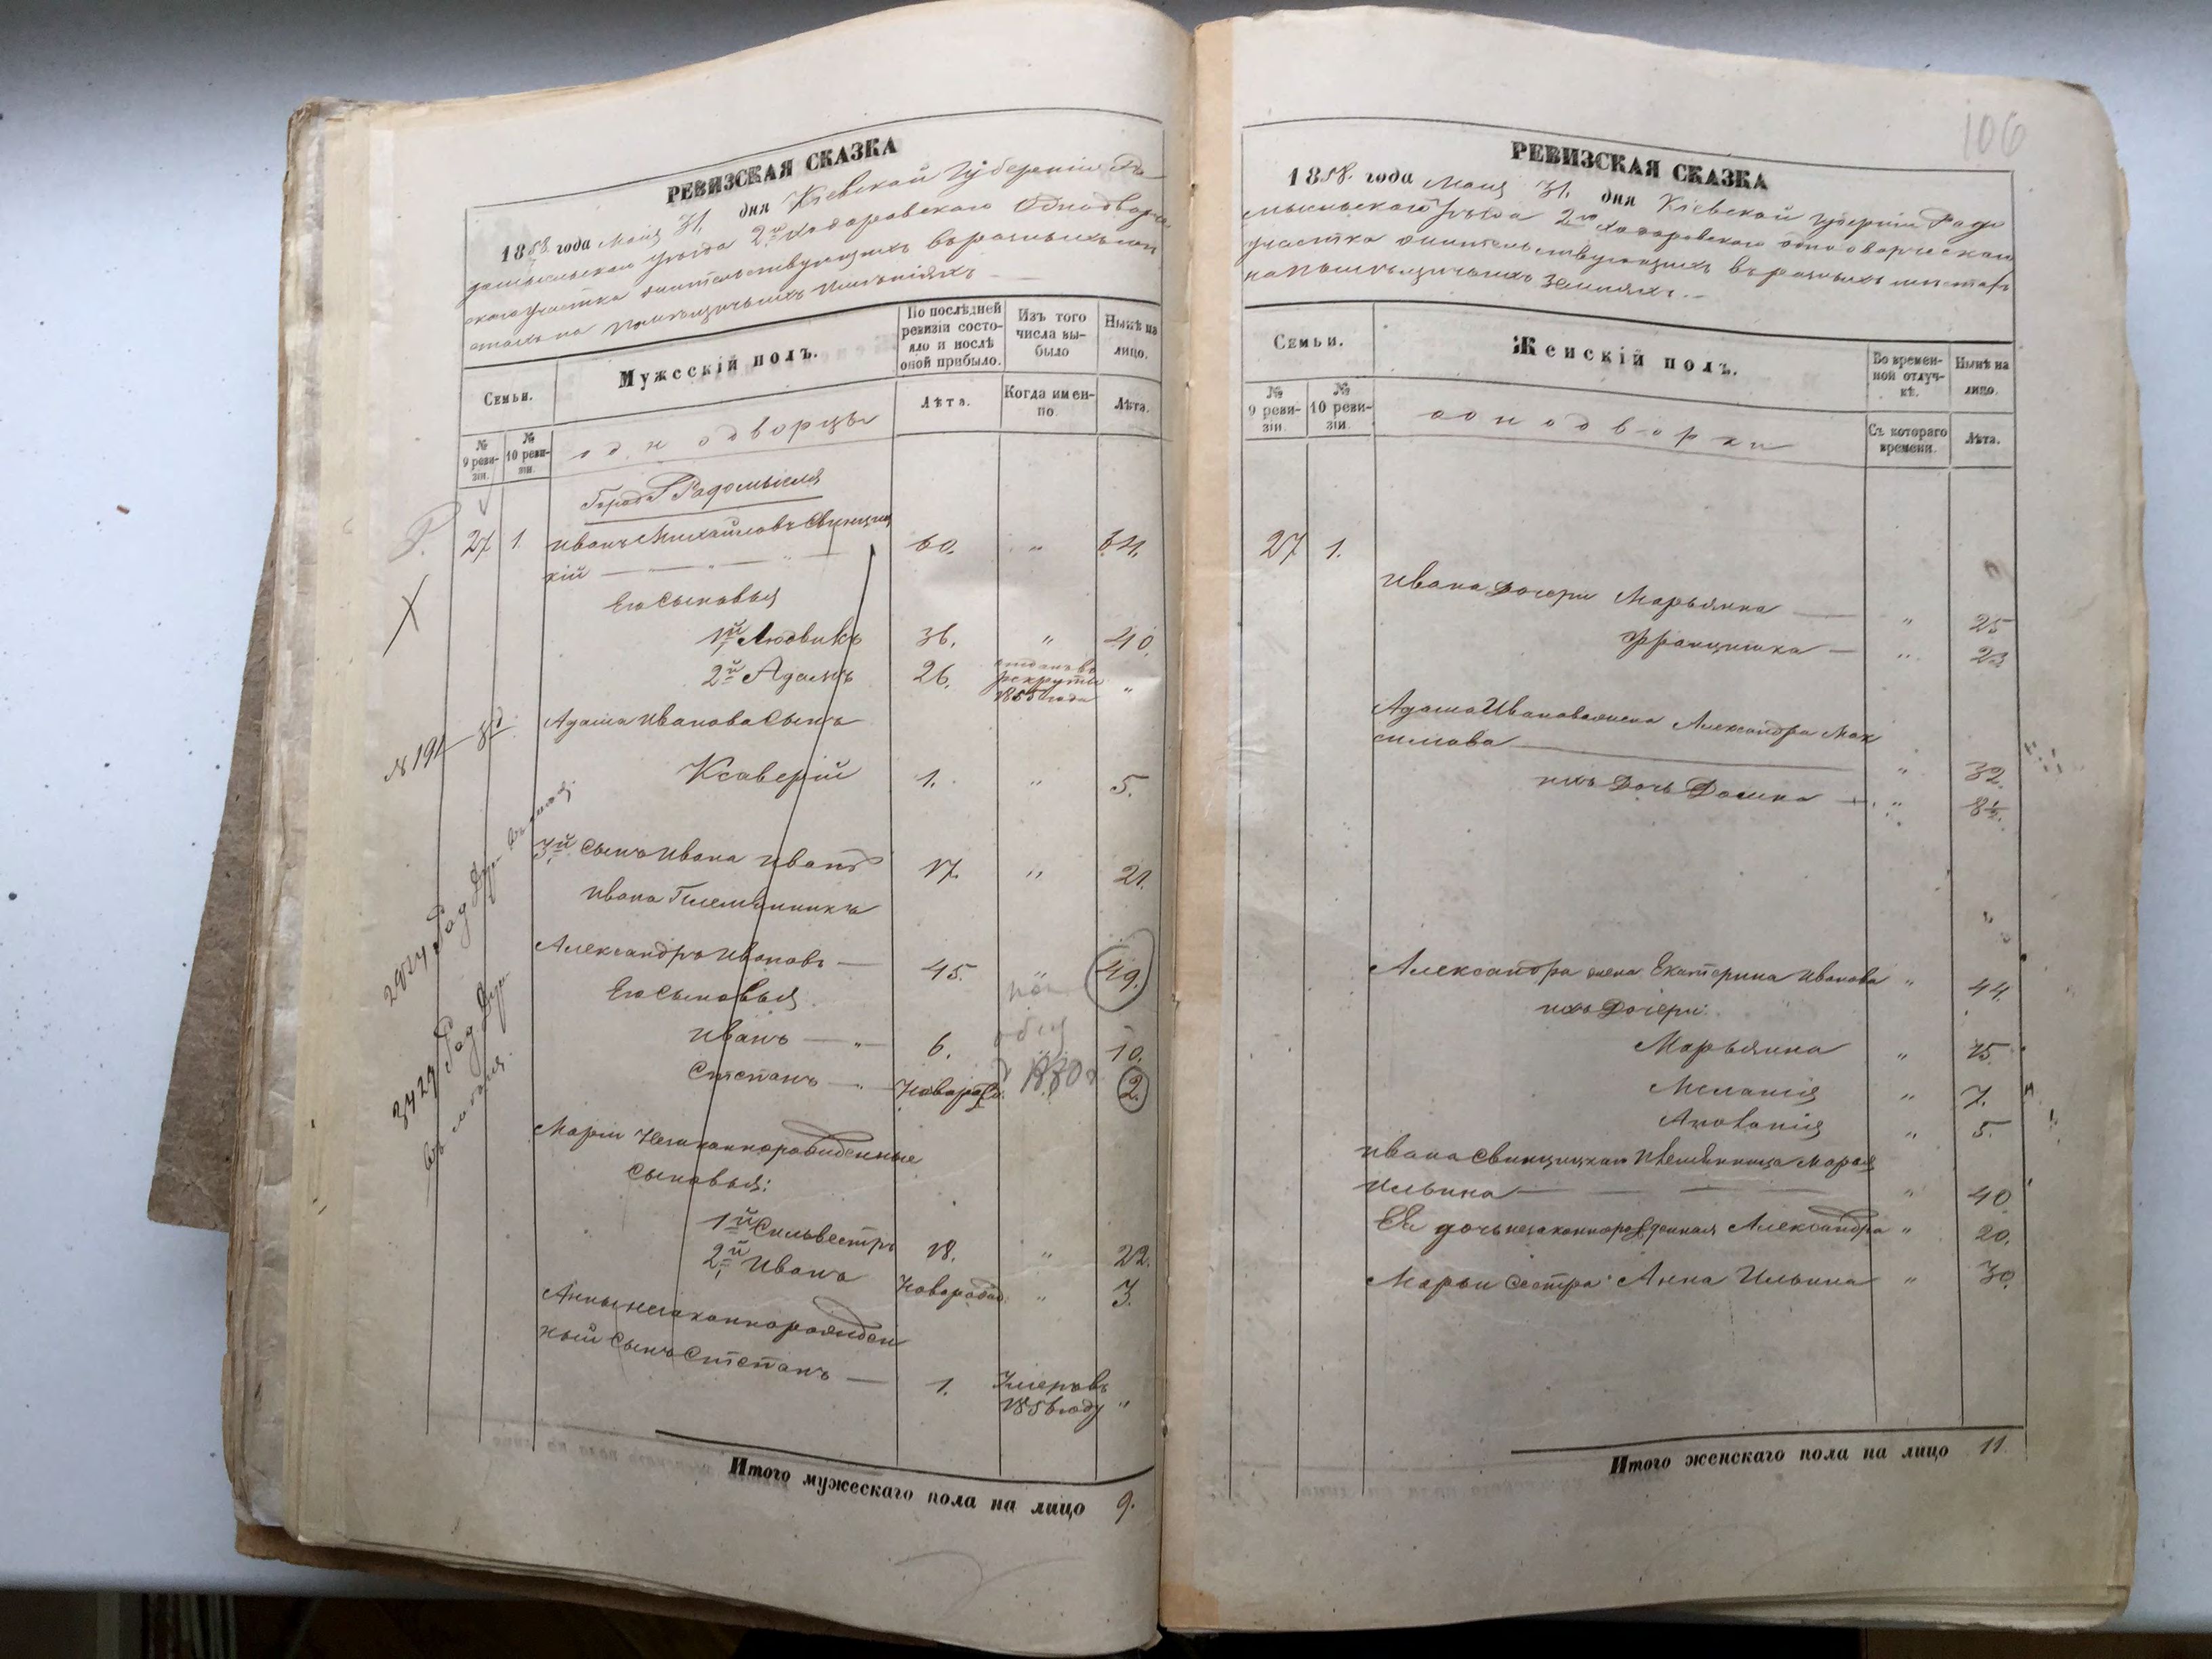 РЕВИЗСКАЯ СКАЗКА
1858 года Мая 31. дня Кіевской Губерніи Ра-
домысльскаго уѣзда 2го Ходоровскаго Однодворче-
скаго участка жительствующихъ въ разныхъ мѣ
стахъ на помѣщичьихъ имѣніяхъ
Семьи.
Мужескій полъ.
По послѣдней ревизіи состо-
яло и послѣ
оной прибыло.
Изъ того
числа вы-
было
Нынѣ на
лицо.
№
9 реви-
зіи.
№
10 реви-
зіи.
однодворцы
Лѣта.
Когда имен-
но.
Лѣта.
Городъ Радомысль
27 1. Иванъ Михайловъ Свинциц
кій 60. " 64.
Его сыновья
1й Людвикъ 36. " 40.
2й Адамъ 26. отданъ въ
рекруты
1855 года "
№ 191
Адама Иванова сынъ
Ксаверій 1. " 5.
3й сынъ Ивана Иванъ 17. " 21.
Ивана Племянникъ
Александръ Ивановъ 45. " 49.
Его сыновья
Иванъ 6. " 10.
Степанъ Новорожд. 2.
1880
2924
3429
Марьи Незаконнорожденные
сыновья:
1й Сильвестръ 18. " 22.
2й Иванъ Новорожд. " 3.
Анны незаконнорожден
ный сынъ Степанъ 1. Умеръ въ
1856 году "
Итого мужескаго пола на лицо 9.
106
РЕВИЗСКАЯ СКАЗКА
1858. года Мая 31. дня Кіевской губерніи Радо
мысльскаго уѣзда 2го Ходоровскаго однодворческаго
участка жительствующихъ въ разныхъ мѣстахъ
на помѣщичьихъ земляхъ.
Семьи.
Женскій полъ.
Во времен-
ной отлуч-
кѣ.
Нынѣ на
лицо.
№
9 реви-
зіи.
№
10 реви-
зіи.
однодворки
Съ котораго
времени.
Лѣта.
27 1.
Ивана дочери Марьянна " 25
Францишка " 23
Адама Иванова жена Александра Мак
симова " 32.
ихъ дочь Домка " 8½.
Александра жена Екатерина Иванова " 44.
ихъ дочери:
Марьянна " 15.
Меланія " 7.
Аполонія " 5.
Ивана Свинцицкаго племянница Марья
Ильина " 40
Ея дочь незаконнорожденная Александра " 20.
Марьи сестра Анна Ильина " 30.
Итого женскаго пола на лицо 11.